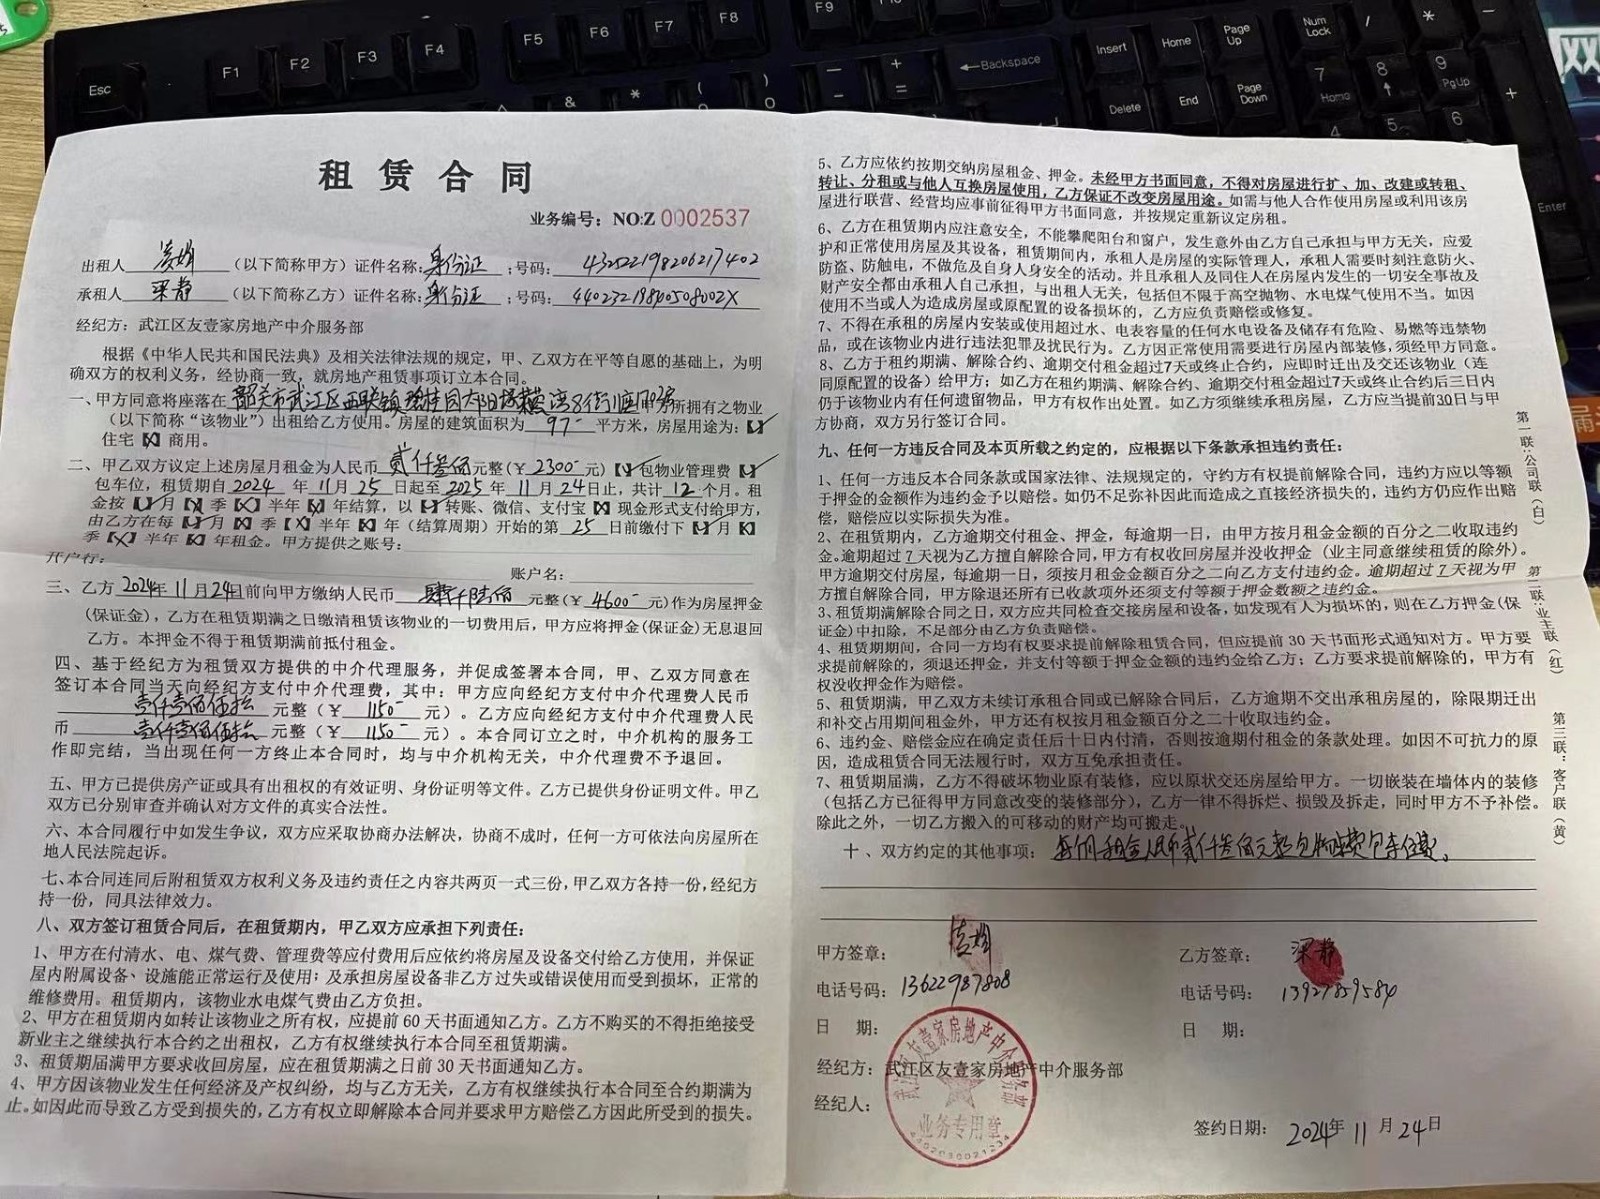 Esc
F1
F2
F3
F4
F5
F6
F7
F8
F9
← Backspace
Insert
Home
Page Up
Num Lock
/
*
Delete
End
Page Down
7 Home
8
9 PgUp
+
4
5
6
Enter
租赁合同
业务编号：NO:Z 0002537
出租人 （以下简称甲方）证件名称：身份证；号码：432522198206217402
承租人 梁静 （以下简称乙方）证件名称：身份证；号码：44023219840508002X
经纪方：武江区友壹家房地产中介服务部
根据《中华人民共和国民法典》及相关法律法规的规定，甲、乙双方在平等自愿的基础上，为明
确双方的权利义务，经协商一致，就房地产租赁事项订立本合同。
一、甲方同意将座落在 韶关市武江区西联镇碧桂园太阳城 湾8街1座703房 甲方所拥有之物业
（以下简称“该物业”）出租给乙方使用。房屋的建筑面积为 97 平方米，房屋用途为：【✓】
住宅【X】商用。
二、甲乙双方议定上述房屋月租金为人民币 贰仟叁佰 元整（￥ 2300 元）【✓】包物业管理费【✓】
包车位，租赁期自 2024 年 11 月 25 日起至 2025 年 11 月 24 日止，共计 12 个月。租
金按【✓】月【X】季【X】半年【X】年结算，以【✓】转账、微信、支付宝【X】现金形式支付给甲方，
由乙方在每【✓】月【X】季【X】半年【X】年（结算周期）开始的第 25 日前缴付下【✓】月【X】
季【X】半年【X】年租金。甲方提供之账号：
开户行： 账户名：
三、乙方 2024年 11 月 24日前向甲方缴纳人民币 肆仟陆佰 元整（￥ 4600 元）作为房屋押金
（保证金），乙方在租赁期满之日缴清租赁该物业的一切费用后，甲方应将押金(保证金)无息退回
乙方。本押金不得于租赁期满前抵付租金。
四、基于经纪方为租赁双方提供的中介代理服务，并促成签署本合同，甲、乙双方同意在
签订本合同当天向经纪方支付中介代理费，其中：甲方应向经纪方支付中介代理费人民币
壹仟壹佰伍拾 元整（￥ 1150 元）。乙方应向经纪方支付中介代理费人民
币 壹仟壹佰伍拾 元整（￥ 1150 元）。本合同订立之时，中介机构的服务工
作即完结，当出现任何一方终止本合同时，均与中介机构无关，中介代理费不予退回。
五、甲方已提供房产证或具有出租权的有效证明、身份证明等文件。乙方已提供身份证明文件。甲乙
双方已分别审查并确认对方文件的真实合法性。
六、本合同履行中如发生争议，双方应采取协商办法解决，协商不成时，任何一方可依法向房屋所在
地人民法院起诉。
七、本合同连同后附租赁双方权利义务及违约责任之内容共两页一式三份，甲乙双方各持一份，经纪方
持一份，同具法律效力。
八、双方签订租赁合同后，在租赁期内，甲乙双方应承担下列责任：
1、甲方在付清水、电、煤气费、管理费等应付费用后应依约将房屋及设备交付给乙方使用，并保证
屋内附属设备、设施能正常运行及使用；及承担房屋设备非乙方过失或错误使用而受到损坏，正常的
维修费用。租赁期内，该物业水电煤气费由乙方负担。
2、甲方在租赁期内如转让该物业之所有权，应提前 60 天书面通知乙方。乙方不购买的不得拒绝接受
新业主之继续执行本合约之出租权，乙方有权继续执行本合同至租赁期满。
3、租赁期届满甲方要求收回房屋，应在租赁期满之日前 30 天书面通知乙方。
4、甲方因该物业发生任何经济及产权纠纷，均与乙方无关，乙方有权继续执行本合同至合约期满为
止。如因此而导致乙方受到损失的，乙方有权立即解除本合同并要求甲方赔偿乙方因此所受到的损失。
5、乙方应依约按期交纳房屋租金、押金。未经甲方书面同意，不得对房屋进行扩、加、改建或转租、
转让、分租或与他人互换房屋使用，乙方保证不改变房屋用途。如需与他人合作使用房屋或利用该房
屋进行联营、经营均应事前征得甲方书面同意，并按规定重新议定房租。
6、乙方在租赁期内应注意安全，不能攀爬阳台和窗户，发生意外由乙方自己承担与甲方无关，应爱
护和正常使用房屋及其设备，租赁期间内，承租人是房屋的实际管理人，承租人需要时刻注意防火、
防盗、防触电，不做危及自身人身安全的活动。并且承租人及同住人在房屋内发生的一切安全事故及
财产安全都由承租人自己承担，与出租人无关，包括但不限于高空抛物、水电煤气使用不当。如因
使用不当或人为造成房屋或原配置的设备损坏的，乙方应负责赔偿或修复。
7、不得在承租的房屋内安装或使用超过水、电表容量的任何水电设备及储存有危险、易燃等违禁物
品，或在该物业内进行违法犯罪及扰民行为。乙方因正常使用需要进行房屋内部装修，须经甲方同意。
8、乙方于租约期满、解除合约、逾期交付租金超过7天或终止合约，应即时迁出及交还该物业（连
同原配置的设备）给甲方；如乙方在租约期满、解除合约、逾期交付租金超过7天或终止合约后三日内
仍于该物业内有任何遗留物品，甲方有权作出处置。如乙方须继续承租房屋，乙方应当提前30日与甲
方协商，双方另行签订合同。
九、任何一方违反合同及本页所载之约定的，应根据以下条款承担违约责任：
1、任何一方违反本合同条款或国家法律、法规规定的，守约方有权提前解除合同，违约方应以等额
于押金的金额作为违约金予以赔偿。如仍不足弥补因此而造成之直接经济损失的，违约方仍应作出赔
偿，赔偿应以实际损失为准。
2、在租赁期内，乙方逾期交付租金、押金，每逾期一日，由甲方按月租金金额的百分之二收取违约
金。逾期超过 7 天视为乙方擅自解除合同，甲方有权收回房屋并没收押金（业主同意继续租赁的除外）。
甲方逾期交付房屋，每逾期一日，须按月租金金额百分之二向乙方支付违约金。逾期超过 7 天视为甲
方擅自解除合同，甲方除退还所有已收款项外还须支付等额于押金数额之违约金。
3、租赁期满解除合同之日，双方应共同检查交接房屋和设备，如发现有人为损坏的，则在乙方押金(保
证金)中扣除，不足部分由乙方负责赔偿。
4、租赁期期间，合同一方均有权要求提前解除租赁合同，但应提前 30 天书面形式通知对方。甲方要
求提前解除的，须退还押金，并支付等额于押金金额的违约金给乙方；乙方要求提前解除的，甲方有
权没收押金作为赔偿。
5、租赁期满，甲乙双方未续订承租合同或已解除合同后，乙方逾期不交出承租房屋的，除限期迁出
和补交占用期间租金外，甲方还有权按月租金额百分之二十收取违约金。
6、违约金、赔偿金应在确定责任后十日内付清，否则按逾期付租金的条款处理。如因不可抗力的原
因，造成租赁合同无法履行时，双方互免承担责任。
7、租赁期届满，乙方不得破坏物业原有装修，应以原状交还房屋给甲方。一切嵌装在墙体内的装修
（包括乙方已征得甲方同意改变的装修部分），乙方一律不得拆烂、损毁及拆走，同时甲方不予补偿。
除此之外，一切乙方搬入的可移动的财产均可搬走。
十、双方约定的其他事项：每个月租金人民币贰仟叁佰元整包物业费包车位费。
甲方签章：
乙方签章：梁静
电话号码：13622987808
电话号码：13927859584
日 期：
日 期：
经纪方：武江区友壹家房地产中介服务部
经纪人：
签约日期：2024年 11 月 24日
武江区友壹家房地产中介服务部
业务专用章
4402030021234
第一联：公司联（白）
第二联：业主联（红）
第三联：客户联（黄）